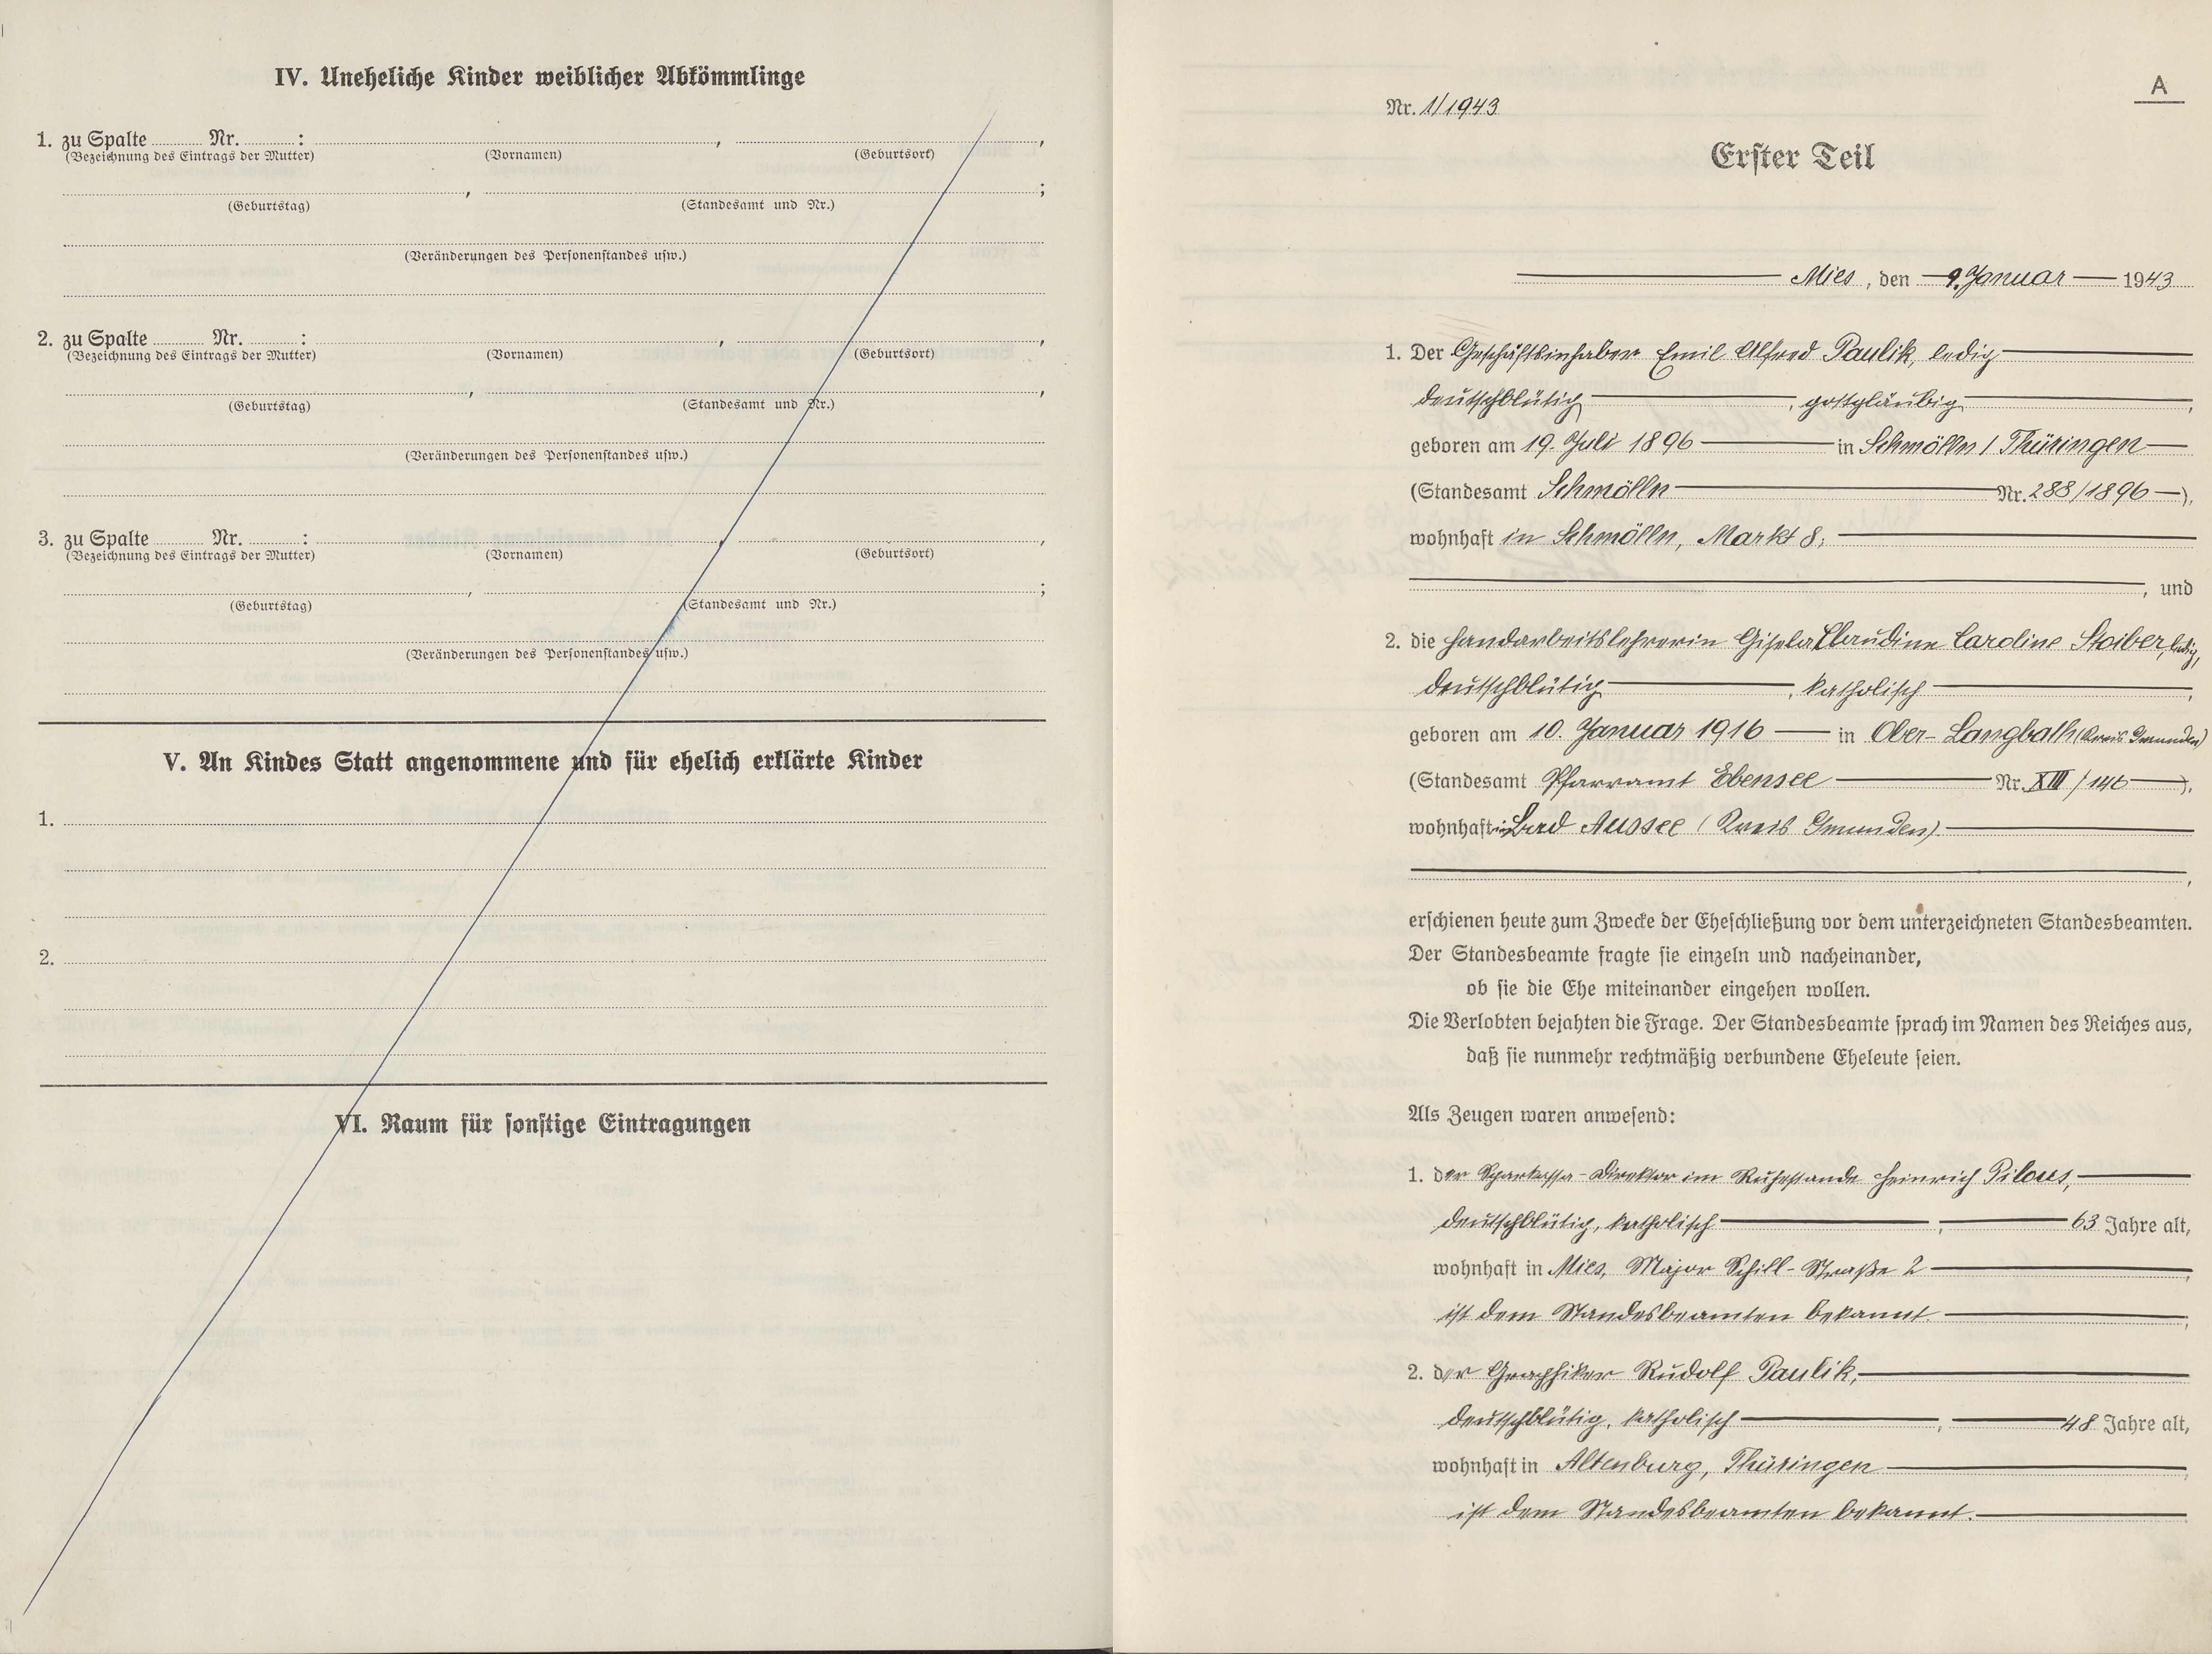 IV. Uneheliche Kinder weiblicher Abkömmlinge
1. zu Spalte Nr. : , ,
(Bezeichnung des Eintrags der Mutter) (Vornamen) (Geburtsort)
, ;
(Geburtstag) (Standesamt und Nr.)
(Veränderungen des Personenstandes usw.)
2. zu Spalte Nr. : , ,
(Bezeichnung des Eintrags der Mutter) (Vornamen) (Geburtsort)
, ,
(Geburtstag) (Standesamt und Nr.)
(Veränderungen des Personenstandes usw.)
3. zu Spalte Nr. : , ,
(Bezeichnung des Eintrags der Mutter) (Vornamen) (Geburtsort)
, ;
(Geburtstag) (Standesamt und Nr.)
(Veränderungen des Personenstandes usw.)
V. An Kindes Statt angenommene und für ehelich erklärte Kinder
1.
2.
VI. Raum für sonstige Eintragungen
A
Nr. 1/1943
Erster Teil
Mies, den 9. Januar 1943
1. Der Geschäftsinhaber Emil Alfred Paulik, ledig
deutschblütig, gottgläubig,
geboren am 19. Juli 1896 in Schmölln / Thüringen
(Standesamt Schmölln Nr. 288/1896),
wohnhaft in Schmölln, Markt 8,
, und
2. die Handarbeitslehrerin Gisela Claudine Caroline Stoiber, ledig,
deutschblütig, katholisch,
geboren am 10. Januar 1916 in Ober-Langbath (Kreis Gmunden)
(Standesamt Pfarramt Ebensee Nr. XIII / 146),
wohnhaft in Bad Aussee (Kreis Gmunden)
,
erschienen heute zum Zwecke der Eheschließung vor dem unterzeichneten Standesbeamten.
Der Standesbeamte fragte sie einzeln und nacheinander,
ob sie die Ehe miteinander eingehen wollen.
Die Verlobten bejahten die Frage. Der Standesbeamte sprach im Namen des Reiches aus,
daß sie nunmehr rechtmäßig verbundene Eheleute seien.
Als Zeugen waren anwesend:
1. der Sparkassa-Direktor im Ruhestande Heinrich Pilous,
deutschblütig, katholisch, 63 Jahre alt,
wohnhaft in Mies, Major Schill-Straße 2,
ist dem Standesbeamten bekannt.
2. der Graphiker Rudolf Paulik,
deutschblütig, katholisch, 48 Jahre alt,
wohnhaft in Altenburg, Thüringen,
ist dem Standesbeamten bekannt.